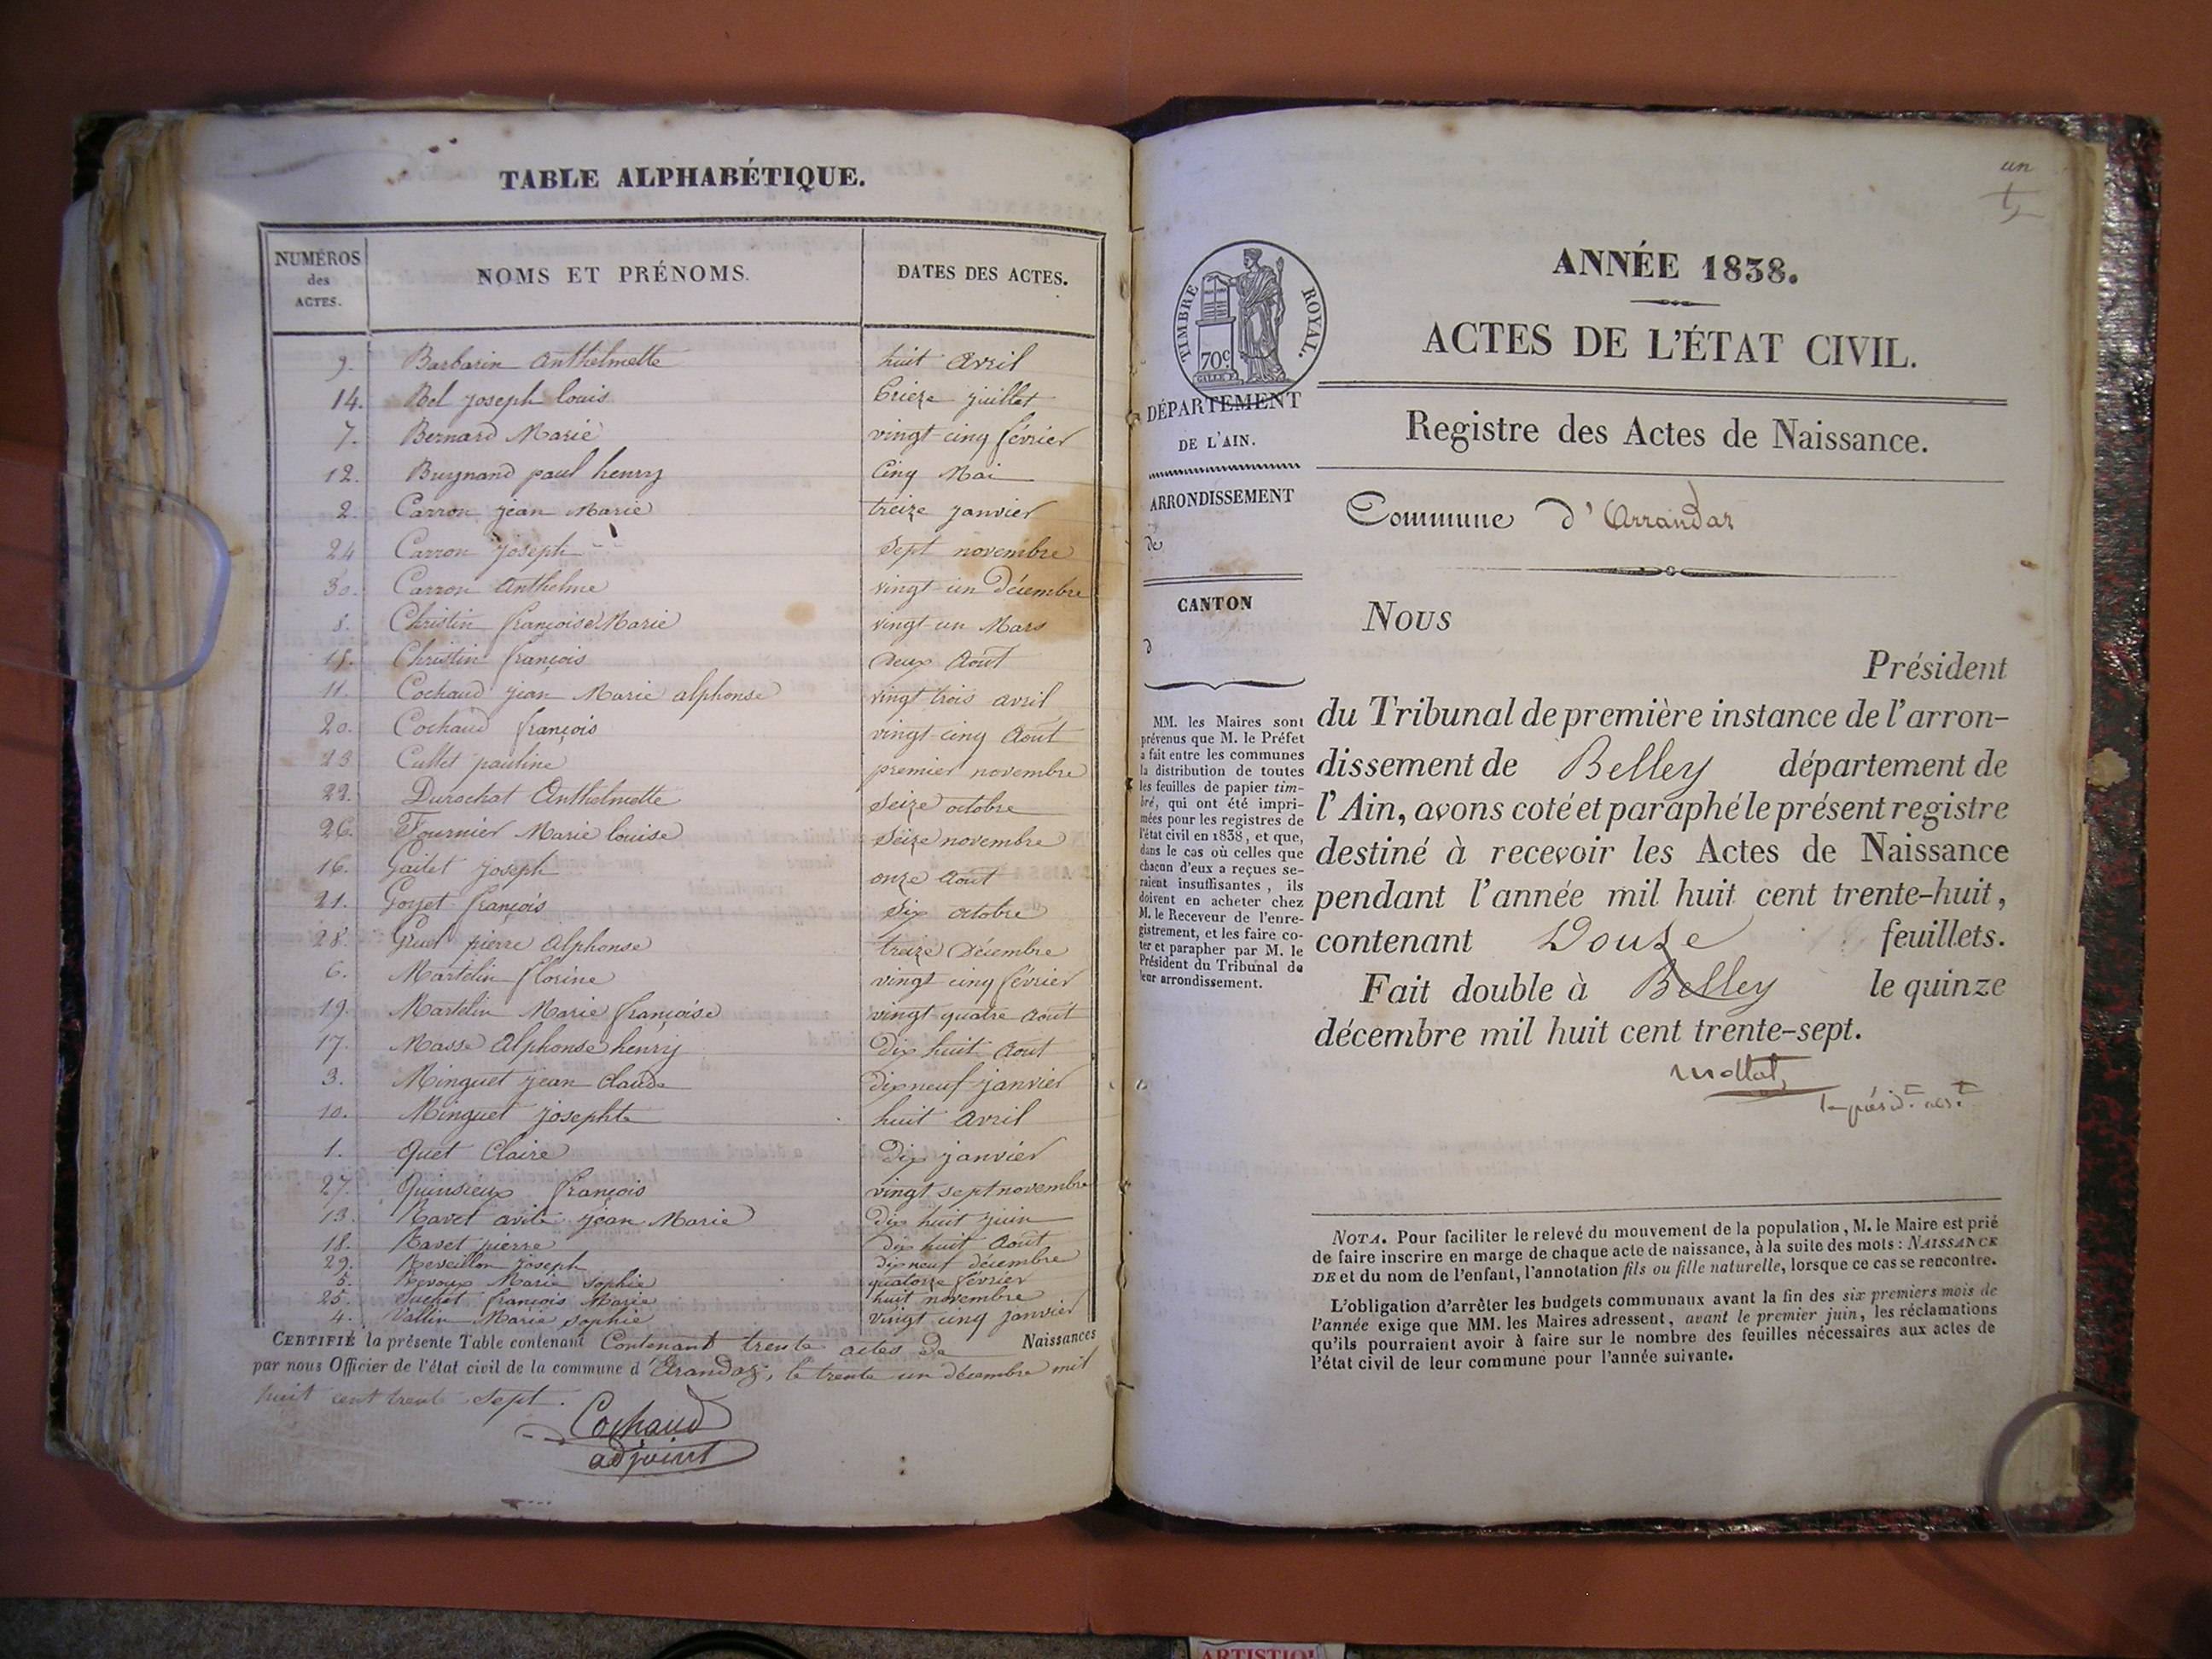 TABLE ALPHABÉTIQUE.
NUMÉROS des ACTES. NOMS ET PRÉNOMS. DATES DES ACTES.
9. Barbarin Anthelmette huit avril
14. Bel joseph louis treize juillet
7. Bernard Marie vingt-cinq février
12. Buynand paul henry Cinq Mai
2. Carron jean Marie treize janvier
24 Carron joseph Sept novembre
30. Carron Anthelme vingt un Décembre
8. Christin françoise Marie vingt-un Mars
15. Christin françois Deux Août
11. Cochaud jean Marie alphonse vingt trois avril
20. Cochaud françois vingt-cinq Août
23 Cullet pauline premier novembre
22. Durochat Anthelmette Seize octobre
26. Fournier Marie louise Seize novembre
16. Gaitet joseph onze Août
21. Goyet françois Dix octobre
28. pierre Alphonse treize Décembre
6. Martelin florine vingt cinq février
19. Martelin Marie françoise vingt quatre Août
17. Masse Alphonse henry Dix huit Août
3. Minguet jean claude Dix neuf janvier
10. Minguet josephte huit Avril
1. Quet Claire Dix janvier
27. Quinsieux françois vingt sept novembre
13. Ravet avite jean Marie Dix huit juin
18. Ravet pierre Dix huit Août
29. Reveillon joseph Dix neuf décembre
5. Revoux Marie Sophie quatorze février
25. Suchet françois Marie huit novembre
4. Vallin Marie Sophie vingt cinq janvier
CERTIFIÉ la présente Table contenant Contenant trente actes de Naissances
par nous Officier de l'état civil de la commune d'Arandaz, le trente un décembre mil
huit cent trente sept.
Cochaud
adjoint
un
ANNÉE 1838.
ACTES DE L'ÉTAT CIVIL.
Registre des Actes de Naissance.
TIMBRE ROYAL.
70c
DÉPARTEMENT
DE L'AIN.
ARRONDISSEMENT
de
CANTON
d
MM. les Maires sont
prévenus que M. le Préfet
a fait entre les communes
la distribution de toutes
les feuilles de papier tim-
bré, qui ont été impri-
mées pour les registres de
l'état civil en 1838, et que,
dans le cas où celles que
chacun d'eux a reçues se-
raient insuffisantes, ils
doivent en acheter chez
M. le Receveur de l'enre-
gistrement, et les faire co-
ter et parapher par M. le
Président du Tribunal de
leur arrondissement.
Commune d'Arrandas
Nous
Président
du Tribunal de première instance de l'arron-
dissement de Belley département de
l'Ain, avons coté et paraphé le présent registre
destiné à recevoir les Actes de Naissance
pendant l'année mil huit cent trente-huit,
contenant Douze feuillets.
Fait double à Belley le quinze
décembre mil huit cent trente-sept.
NOTA. Pour faciliter le relevé du mouvement de la population, M. le Maire est prié
de faire inscrire en marge de chaque acte de naissance, à la suite des mots : NAISSANCE
DE et du nom de l'enfant, l'annotation fils ou fille naturelle, lorsque ce cas se rencontre.
L'obligation d'arrêter les budgets communaux avant la fin des six premiers mois de
l'année exige que MM. les Maires adressent, avant le premier juin, les réclamations
qu'ils pourraient avoir à faire sur le nombre des feuilles nécessaires aux actes de
l'état civil de leur commune pour l'année suivante.